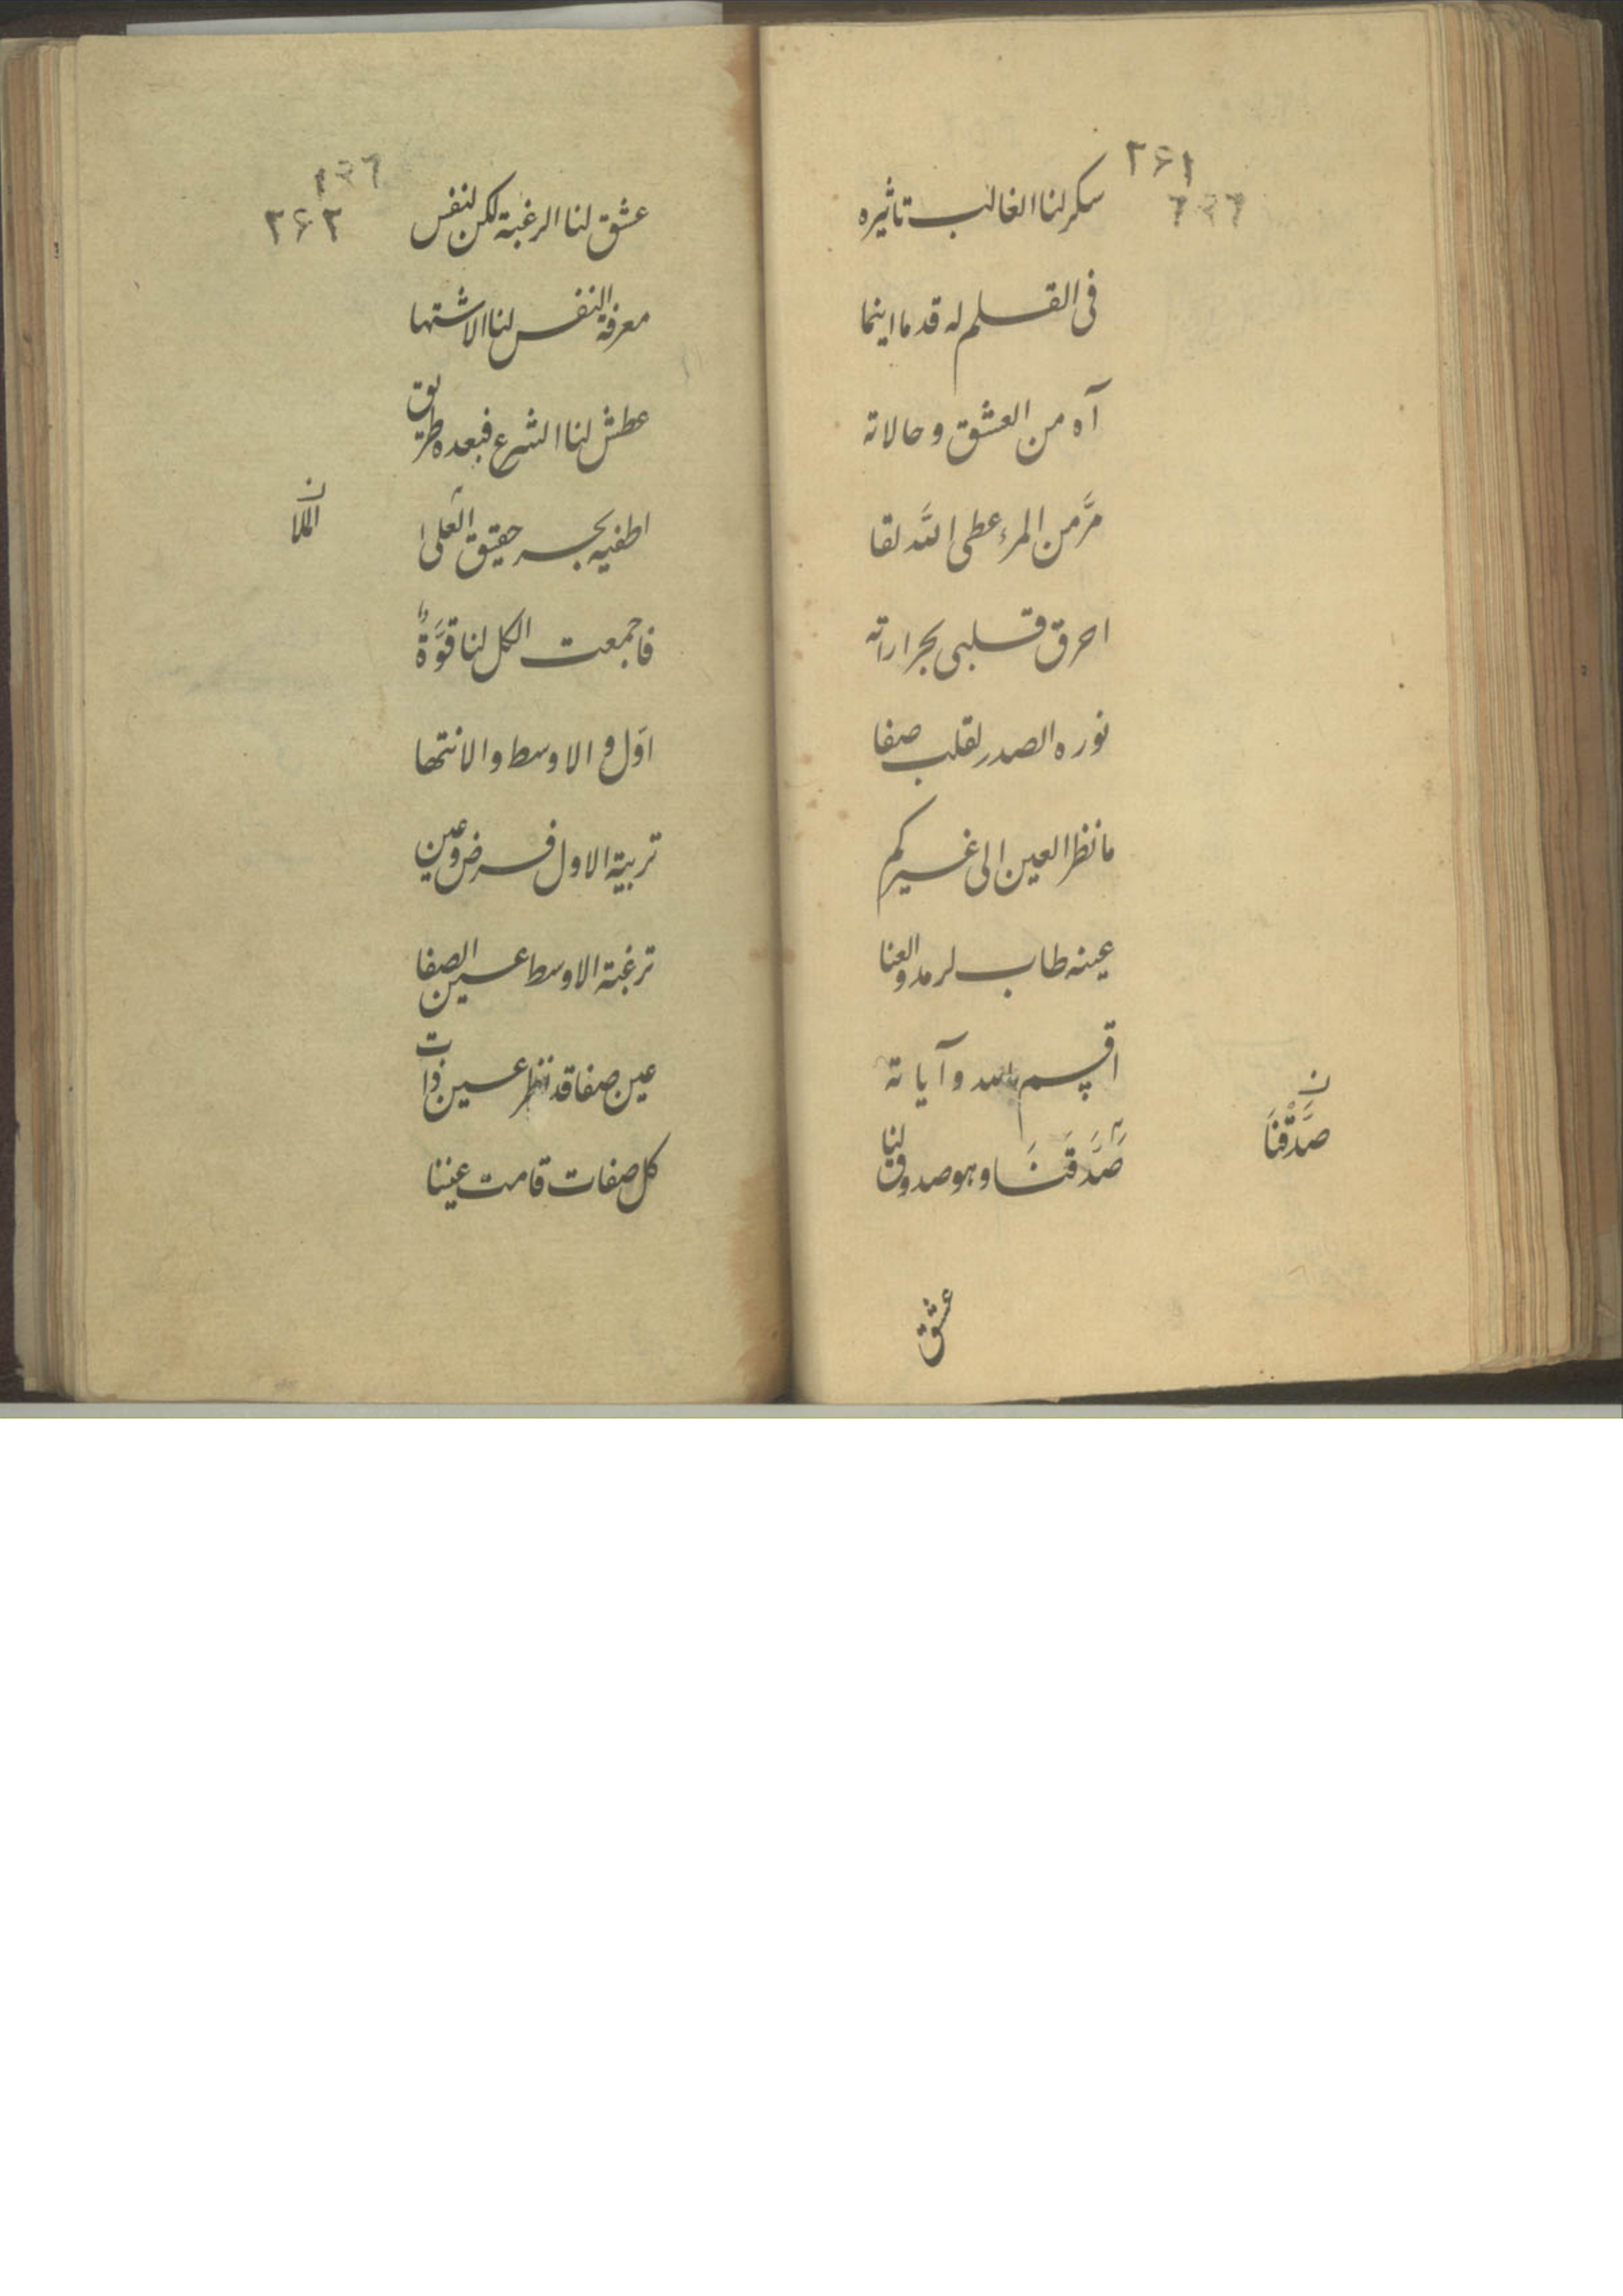 ۲۶۱
سکر لنا الغالب تاثیره
فی القلم له قدما اینما
آه من العشق و حالاته
مرَّ من المرء عطی اللّه لقا
احرق قلبی بحراراته
نوره الصدر لقلب صفا
ما نظر العین الی غیرکم
عینه طاب لرمد والعنا
اقسم باللّه و آیاته
صَدَّقَنَا وهو صدوق لنا
ن
صَدَّقْنَا
عشق
۲۶۲
عشق لنا الرغبة لکن لنفس
معرفة النفس لنا الاشتها
عطش لنا الشرع فبعده طریق
اطفیه بحر حقیق العلی
ن
الملا
فاجمعت الکل لنا قوَّةٌ
اوّل و الاوسط و الانتها
تربیة الاول فرض وعین
ترغبة الاوسط عین الصفا
عین صفا قد نظر عین ذات
کل صفات قامت عیننا